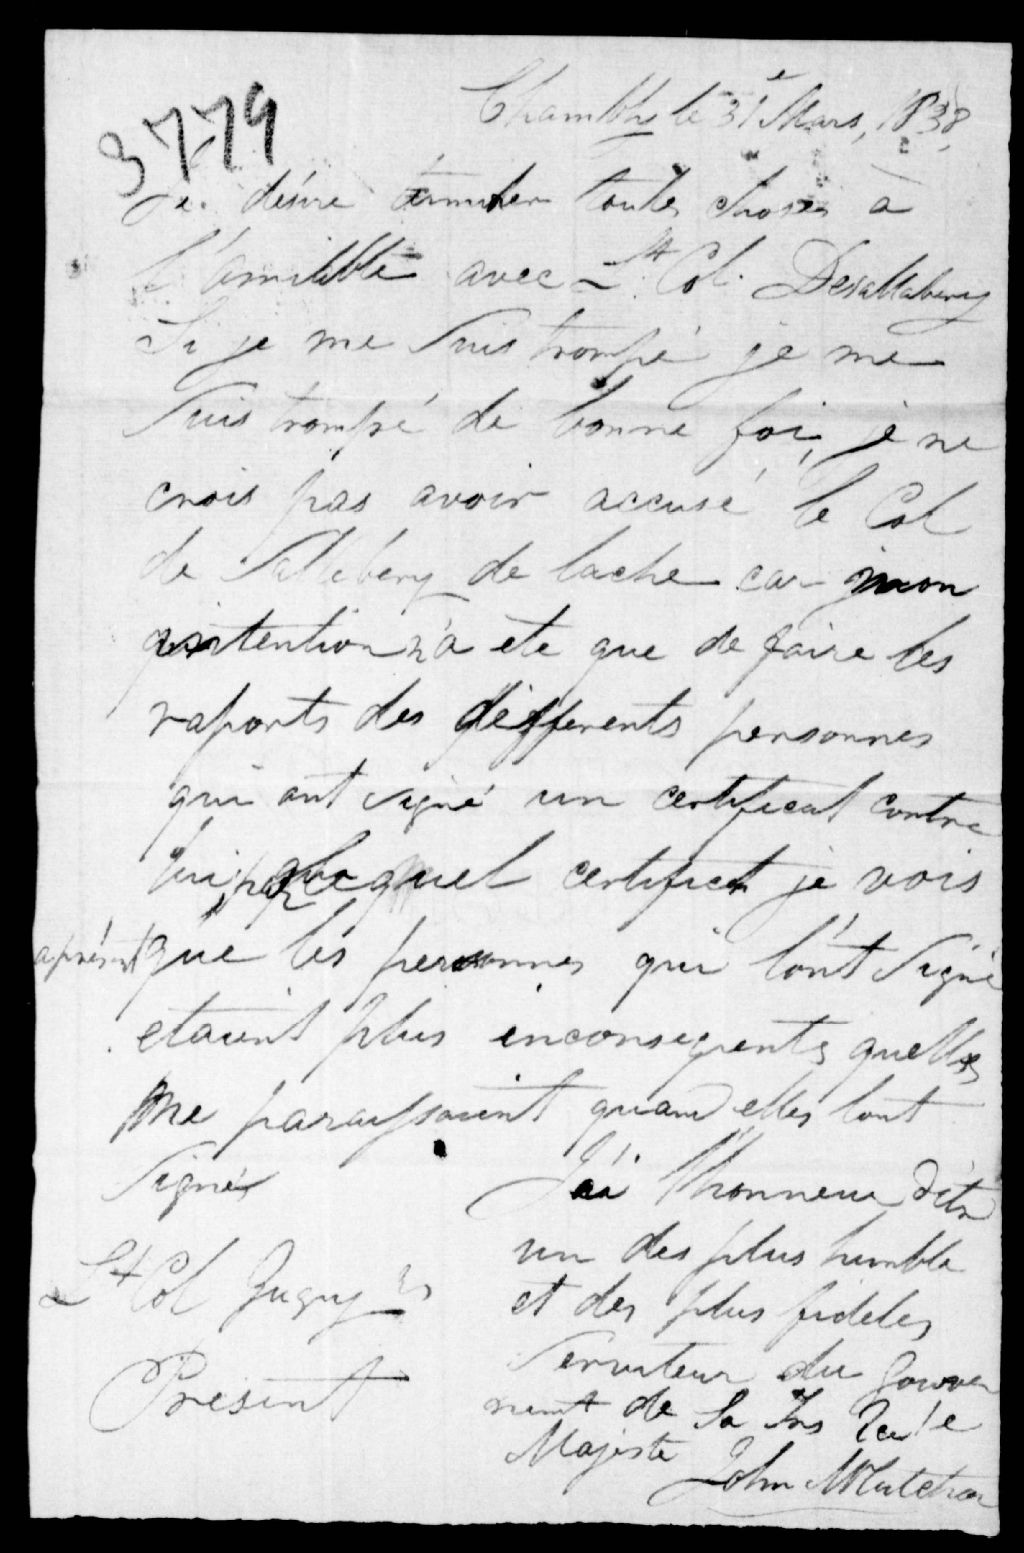 Chambly le 31e Mars, 1838,
3779
Je. désire terminer toutes choses à
l'amibble avec Lt. Col. Desallabery
Si je me suis trompé je me
suis trompé de bonne foi, je ne
crois pas avoir accusé le Col
de Sallebery de lache car mon
intention n'a ete que de faire les
raports des differents personnes
qui ont signé un certificat contre
lui, lequel certificat je vois
aprésent que les personnes qui l'ont signé
etaient plus inconsequents quelles
me paraissaient quand elles lont
signés
J'ai l'honneur d'etre
un des plus humble
et des plus fideles
serviteur du gouver
nemt de Sa
Majeste
John McCutcheon
Lt Col Gugy
Présent